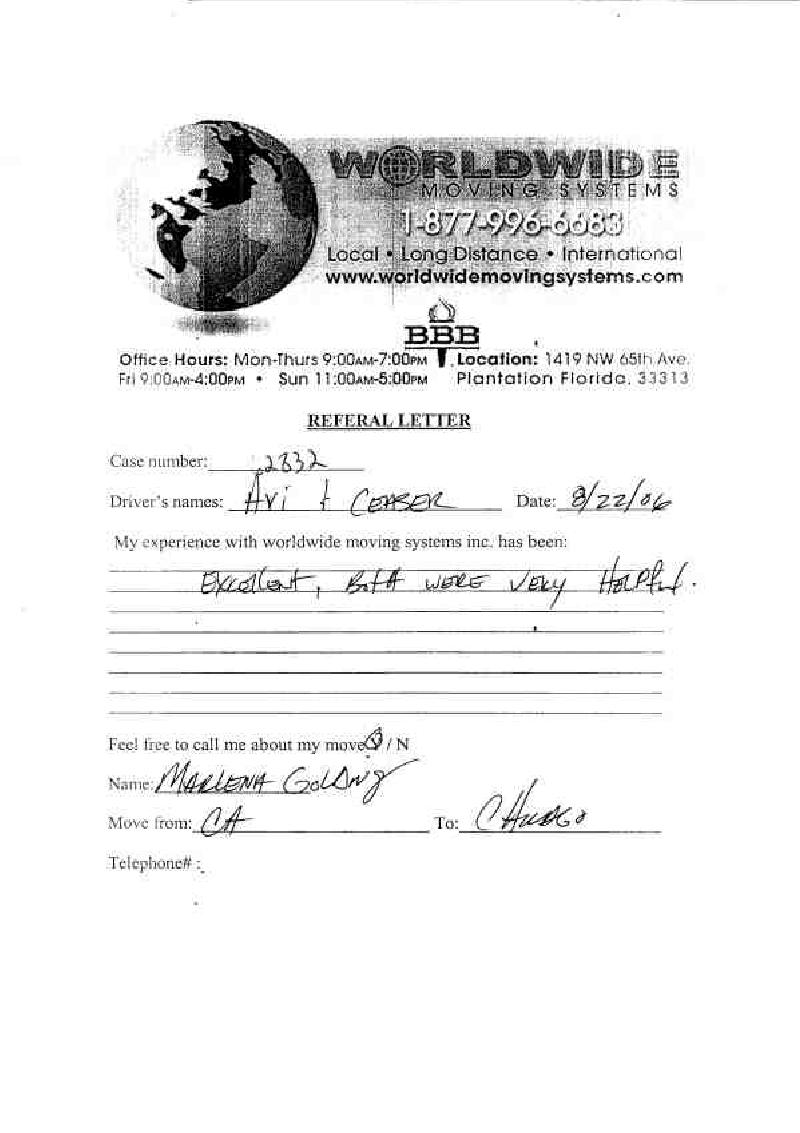 WORLDWIDE
MOVING SYSTEMS
1-877-996-6683
Local • Long Distance • International
www.worldwidemovingsystems.com
BBB
Office Hours: Mon-Thurs 9:00AM-7:00PM
Fri 9:00AM-4:00PM • Sun 11:00AM-5:00PM
Location: 1419 NW 65th Ave.
Plantation Florida. 33313
REFERAL LETTER
Case number: 2832
Driver's names: Avi + CEASER Date: 8/22/06
My experience with worldwide moving systems inc. has been:
Excellent, Both WERE VERY HELPful.
Feel free to call me about my move Y / N
Name: MARLENA Golding
Move from: CA To: CHICAGO
Telephone# :